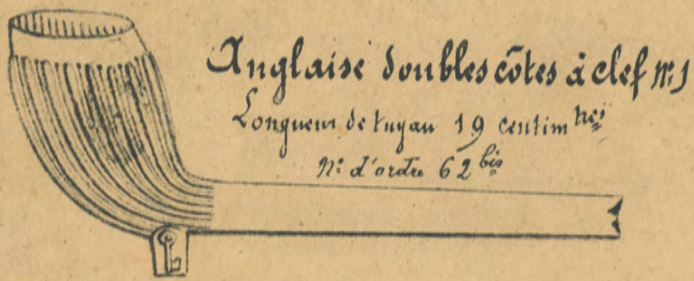 Anglaise doubles côtes à clef N°: 1
Longueur de tuyau 19 centimtres
N°: d'ordre 62 bis